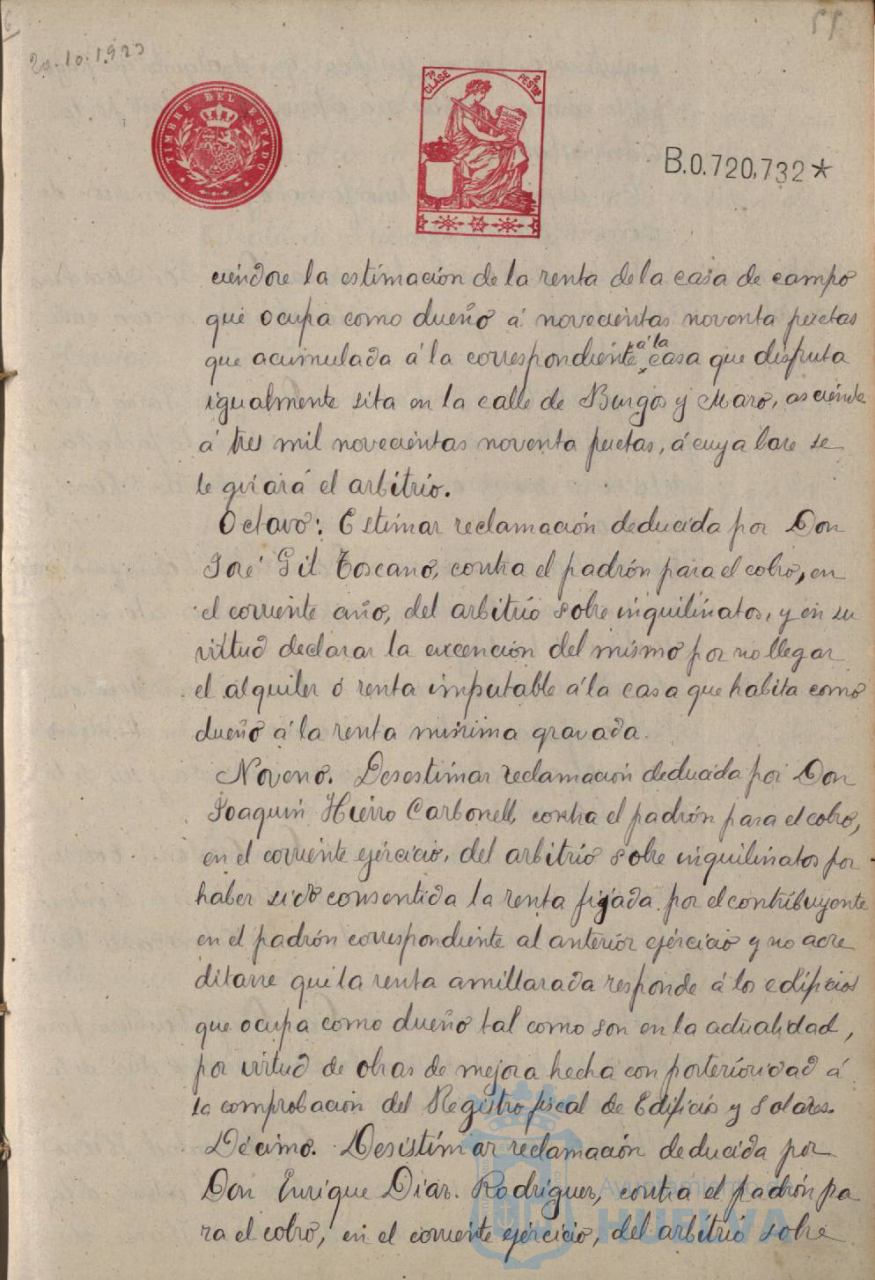 29.10.1923
55
TIMBRE DEL ESTADO
7ª CLASE 2 PESTAS
B.0.720.732*
ciéndose la estimación de la renta de la casa de campo
que ocupa como dueño á novecientas noventa pesetas
que acumulada á la correspondiente á la casa que disfruta
igualmente sita en la calle de Burgos y Mazo, asciende
á tres mil novecientas noventa pesetas, á cuya base se
le guiará el arbitrio.
Octavo: Estimar reclamación deducida por Don
José Gil Toscano, contra el padrón para el cobro, en
el corriente año, del arbitrio sobre inquilinatos, y en su
virtud declarar la excención del mismo por no llegar
el alquiler ó renta imputable á la casa que habita como
dueño á la renta mínima gravada.
Noveno. Desestimar reclamación deducida por Don
Joaquín Hierro Carbonell, contra el padrón para el cobro,
en el corriente ejercicio, del arbitrio sobre inquilinatos por
haber sido consentida la renta fijada por el contribuyente
en el padrón correspondiente al anterior ejercicio y no acre
ditarse que la renta amillarada responde á los edificios
que ocupa como dueño tal como son en la actualidad,
por virtud de obras de mejora hecha con posterioridad á
la comprobación del Registro fiscal de Edificio y Solares.
Décimo. Desistimar reclamación deducida por
Don Enrique Díaz Rodríguez, contra el padrón pa
ra el cobro, en el corriente ejercicio, del arbitrio sobre
Ayuntamiento de
HUELVA